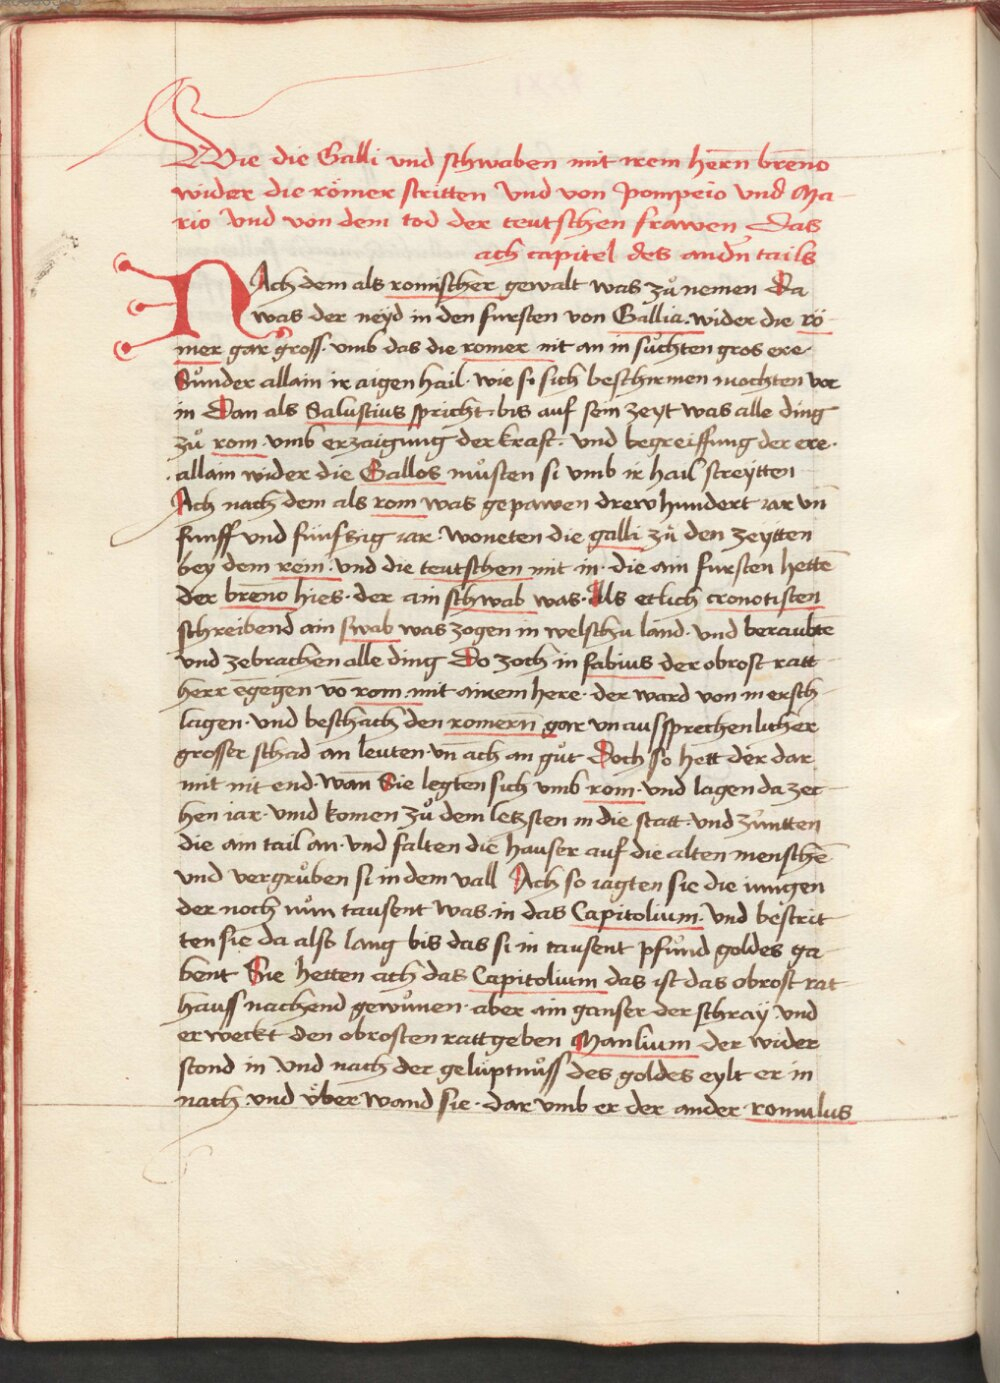 Wie die Galli vnd schwaben mit irem hern̄ brēno
wider die römer stritten Vnd von Pompeio vnd Ma-
rio Vnd von dem tod der teutschen frawen Das
ach capitel des andn̄ tails
NAch dem als romischer gewalt was zů nemen Da
was der neyd in den fursten von Gallia. wider die rö
mer gar gross. vmb das die romer nit an in sůchten gros ere.
Sůnder allain ir aigen hail. wie si sich beschirmen mochten vor
in Dan als Salustius spricht. bis auf sein zeyt was alle ding
zů rom. vmb erzaigung der kraft. vnd begreiffung der ere.
allain wider die Gallos můsten si vmb ir hail streytten
Ach nach dem als rom was gepawen drew hundert iar vn̄
funff vnd fünfzig iar. woneten die galli zů den zeytten
bey dem rein. vnd die teutschen mit in. die ain fursten hettē
der brēno hies. der ain schwab was. Als etlich cronotisten
schreibend ain swab was zogen in welschu land. vnd beraubtē
vnd zebrachen alle ding Do zoch in fabius der obrost ratt
herr egegen vō rom. mit ainem here. der ward von in ersch-
lagen. vnd beschach den romern̄ gar vnaussprechenlicher
grosser schad an leuten. vn̄ ach an gůt Doch so hett der dar
mit nit end. wan̄ Sie legten sich vmb rom. vnd lagen da zec
hen iar. vnd komen zů dem letzsten in die statt. vnd zůntten
die ain tail an. vnd falten die hauser auf die alten menschē
vnd vergrůben si in dem vall Ach so iagten sie die iungen
der noch nůn tausent was. in das Capitolium. Vnd bestrit
ten sie da also lang bis das si in tausent pfůnd goldes ga
bent Sie hetten ach das Capitolium das ist das obrost rat
hauss nachend gewůnen. aber ain ganser der schray vnd
erweckt den obrosten rattgeben Manlium der wider
stond in Vnd nach der gelüptnůss des goldes eylt er in
nach. vnd über wand sie. dar vmb er der ander romulus